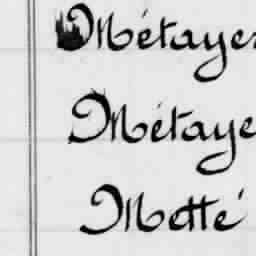 Métayer
Métaye
Metté